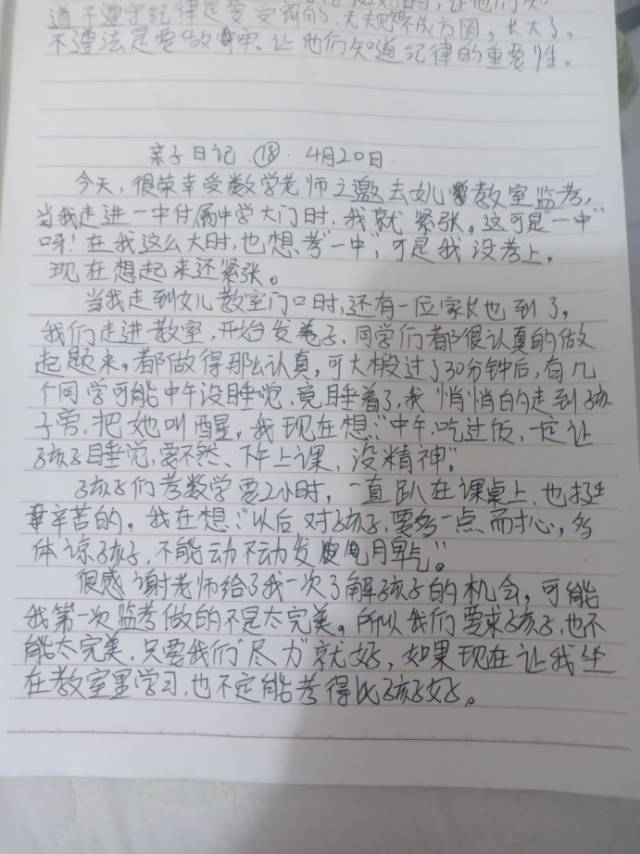 道不遵守纪律是要受罚的,无规矩不成方圆,长大了,
不遵法是要做牢,让他们知道纪律的重要性。
亲子日记 ⑱ 4月20日.
今天,很荣幸受数学老师之邀去女儿教室监考,
当我走进一中付属中学大门时,我就紧张。这可是"一中"
呀!在我这么大时,也想考"一中",可是我没考上,
现在想起来还紧张。
当我走到女儿教室门口时,还有一位家长也到了,
我们走进教室,开始发卷子,同学们都很认真的做
起题来,都做得那么认真,可大概过了30分钟后,有几
个同学可能中午没睡觉,竟睡着了,我悄悄的走到孩
子旁,把她叫醒。我现在想"中午,吃过饭,一定让
孩子睡觉,要不然、下午上课,没精神"。
孩子们考数学要2小时,一直趴在课桌上,也挺
辛苦的。我在想:"以后对孩子,要多一点耐心,多
体谅孩子,不能动不动发脾气"。
很感谢老师给了我一次了解孩子的机会,可能
我第一次监考做的不是太完美。所以我们要求孩子,也不
能太完美,只要我们"尽力"就好,如果现在让我坐
在教室里学习,也不定能考得比孩子好。